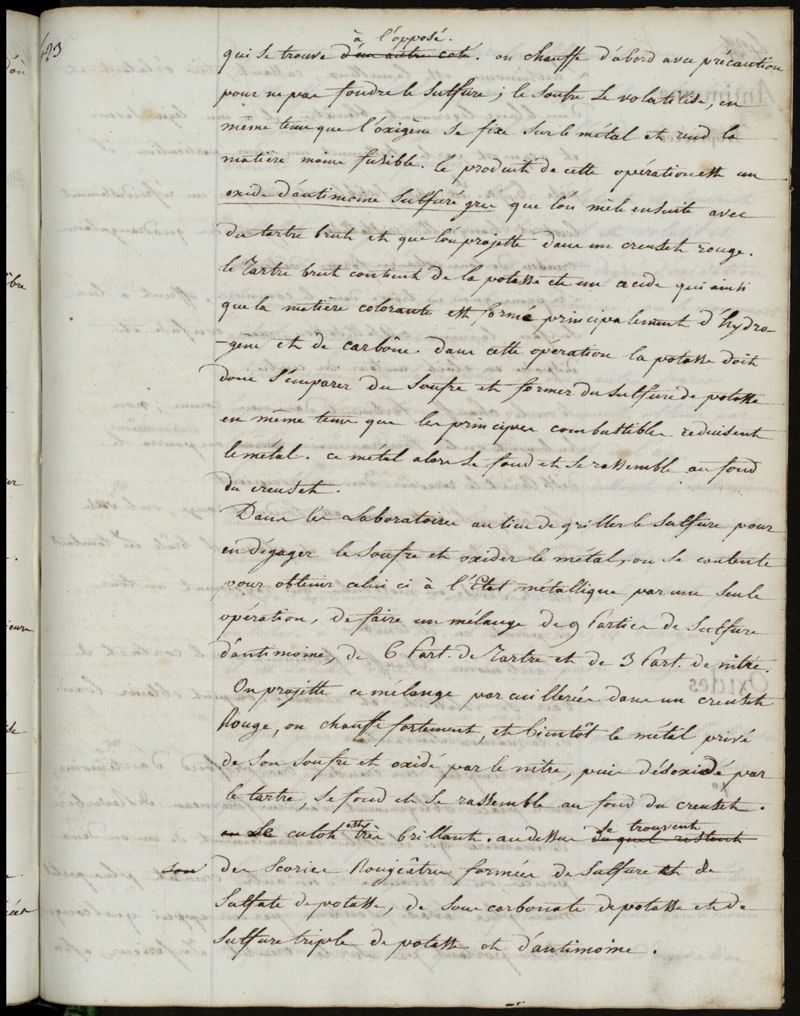 423
à l'opposé.
qui se trouve d'un autre coté. on chauffe d'abord avec précaution
pour ne pas fondre le sulfure; le soufre se volatilise, en
même tems que l'oxigène se fixe sur le métal et rend la
matière moins fusible. le produit de cette opération est un
oxide d'antimoine sulfuré gris que l'on mêle ensuite avec
du tartre brut et que l'on projette dans un creuset rouge.
le Tartre brut contient de la potasse et un acide qui ainsi
que la matière colorante est formé principalement d'hydro-
-gène et de carbône. dans cette opération la potasse doit
donc s'emparer du soufre et former du sulfure de potasse
en même tems que les principes combustibles réduisent
le métal. ce métal alors se fond et se rassemble au fond
du creuset.
Dans les Laboratoires au lieu de griller le sulfure pour
en dégager le soufre et oxider le métal, on se contente
pour obtenir celui ci à l'Etat métallique par une seule
opération, de faire un mélange de 9 Parties de Sulfure
d'antimoine, de 6 Part. de Tartre et de 3 Part. de nitre.
On projette ce mélange par cuillérées dans un creuset
Rouge, on chauffe fortement, et bientôt le métal privé
de son soufre et oxidé par le nitre, puis désoxidé par
le tartre, se fond et se rassemble au fond du creuset.
Le culot est très brillant. au dessus du quel restent se trouvent
des scories Rougeâtres formées de sulfure et de
Sulfate de potasse, de sous carbonate de potasse et de
Sulfure triple de potasse et d'antimoine.